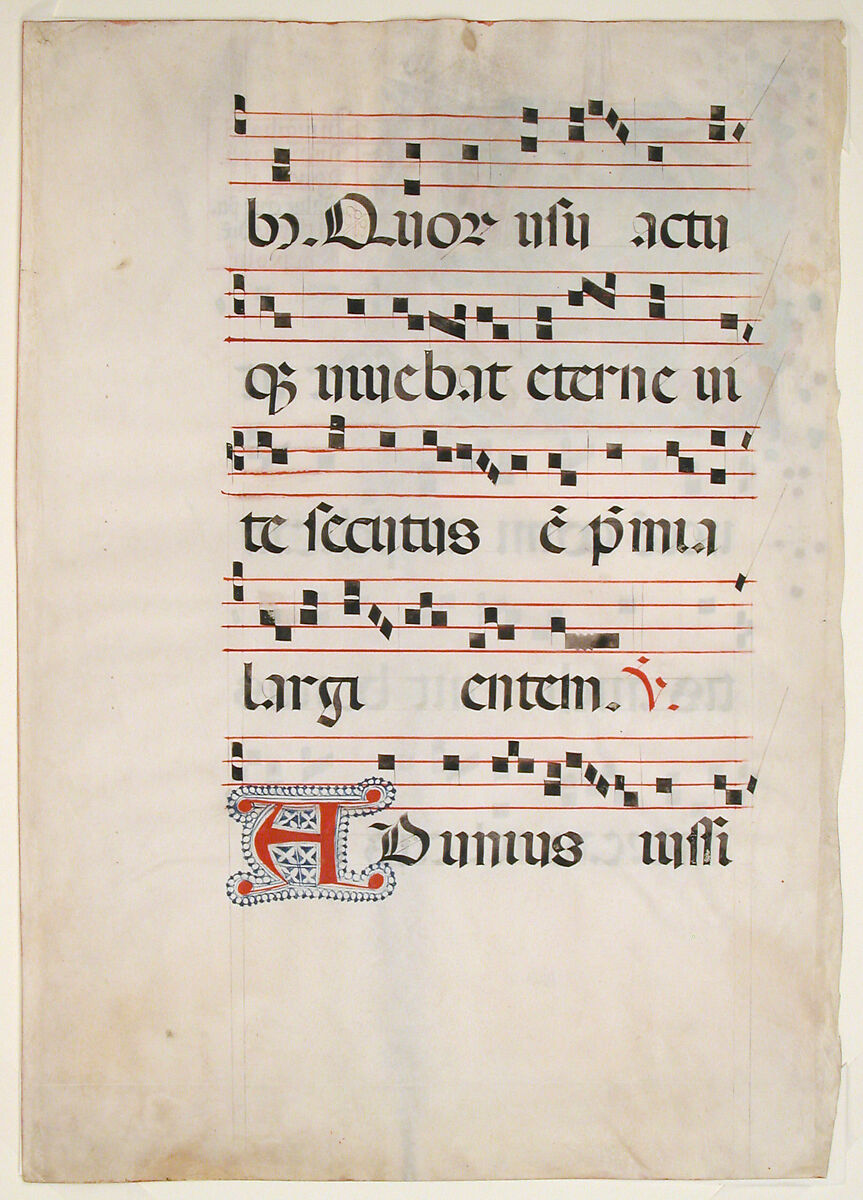 bꝫ. Quor usu actu
qꝫ iniuebat eterne ui
te secutus ē p̄mia
largi entem. ℣.
ADunius iussi